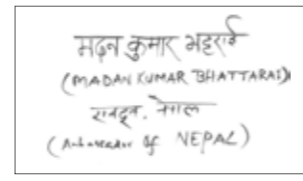 मदन कुमार भट्टराई
(MADAN KUMAR BHATTARAI)
राजदूत, नेपाल
(Ambassador of NEPAL)